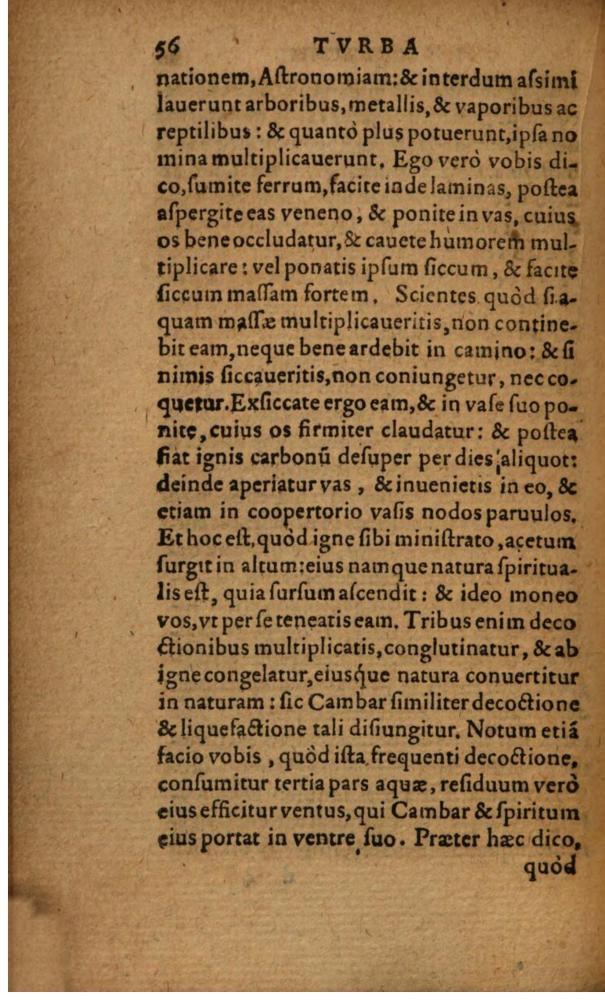 56 TVRBA
nationem, Aſtronomiam: & interdum aſsimi
lauerunt arboribus, metallis, & vaporibus ac
reptilibus: & quantò plus potuerunt, ipſa no
mina multiplicauerunt. Ego verò vobis di-
co, ſumite ferrum, facite inde laminas, poſtea
aſpergite eas veneno, & ponite in vas, cuius
os bene occludatur, & cauete humorem mul-
tiplicare: vel ponatis ipſum ſiccum, & facite
ſiccum maſſam fortem. Scientes quòd ſi a-
quam maſſæ multiplicaueritis, non contine-
bit eam, neque bene ardebit in camino: & ſi
nimis ſiccaueritis, non coniungetur, nec co-
quetur. Exſiccate ergo eam, & in vaſe ſuo po-
nite, cuius os firmiter claudatur: & poſtea
fiat ignis carbonũ deſuper per dies aliquot:
deinde aperiatur vas, & inuenietis in eo, &
etiam in coopertorio vaſis nodos paruulos.
Et hoc eſt, quòd igne ſibi miniſtrato, acetum
ſurgit in altum: eius namque natura ſpiritua-
lis eſt, quia ſurſum aſcendit: & ideo moneo
vos, vt per ſe teneatis eam. Tribus enim deco
ctionibus multiplicatis, conglutinatur, & ab
igne congelatur, eiusq́ue natura conuertitur
in naturam: ſic Cambar ſimiliter decoctione
& liquefactione tali diſiungitur. Notum etiã
facio vobis, quòd iſta frequenti decoctione,
conſumitur tertia pars aquæ, reſiduum verò
eius efficitur ventus, qui Cambar & ſpiritum
eius portat in ventre ſuo. Præter hæc dico,
quòd